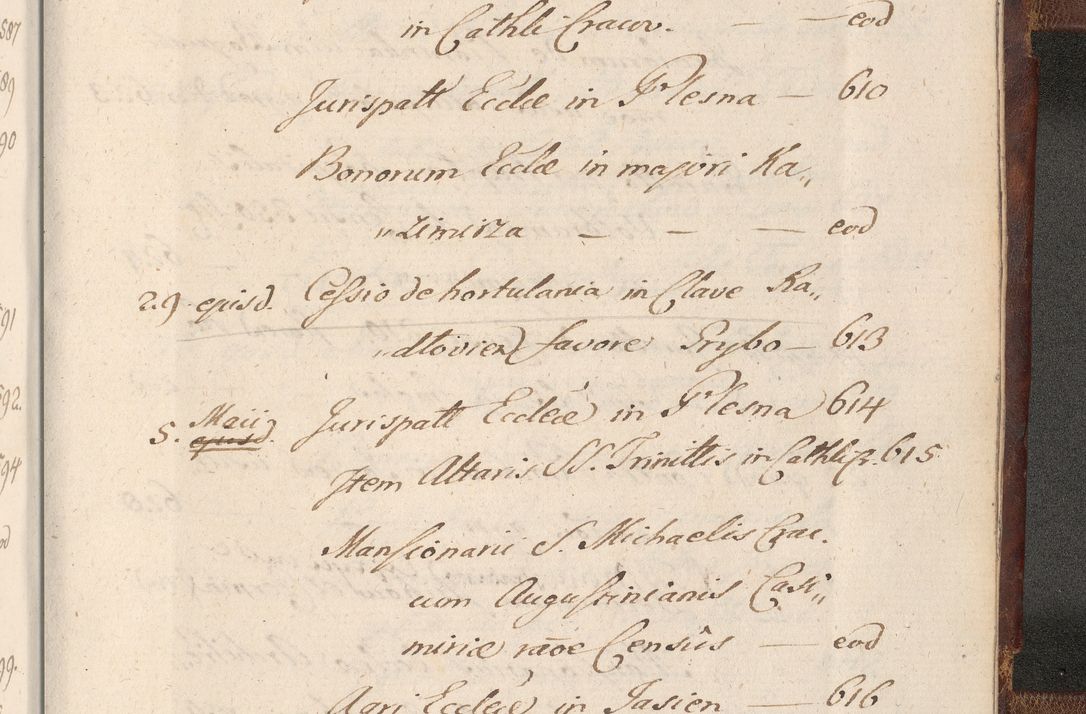 in Cathli Cracov. — — eod
Jurispatt Ecclæ in Plesna — 610
Bonorum Ecclæ in majori Ka„
„zimirza — — — eod
29 ejusd. Cessio de hortulania in Clave Ra„
„dłovien favore Grybo — 613
5. Maii ejusd. Jurispatt Eccleæ in Plesna 614
Item Altaris SS. Trinittis in Cathli 615
Mansionarii S. Michaelis Crac.
cum Augustinianis Casi„
miriæ raõe Censûs — eod
Agri Eccleæ in Jasien — 616
587
89
90
91
592.
594
99.